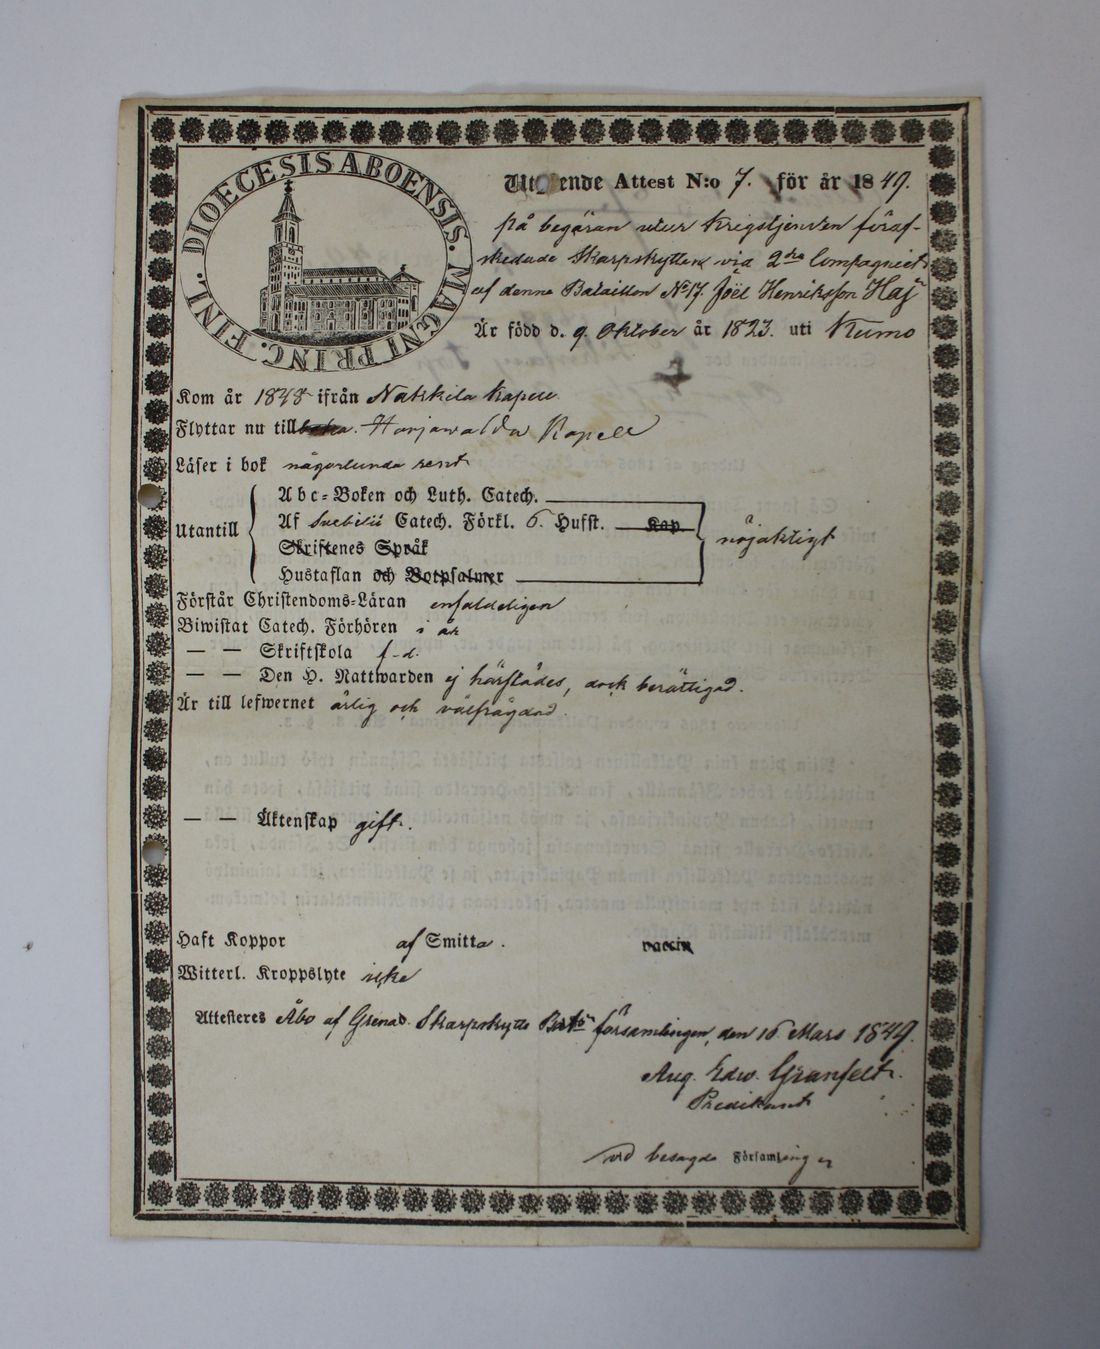 DIOECESIS ABOENSIS. MAGNI PRINC. FINL.
Utgående Attest N:o 7. för år 1849.
på begäran utur Krigstjensten föraf-
skedade Skarpskytten vid 2dra Compagniet
af denna Bataillon No 17 Joël Henriksson Haj
Är född d. 9 Oktober år 1823. uti Kumo
Kom år 1848 ifrån Nakkila kapell
Flyttar nu till Harjawalda Kapell
Läser i bok någorlunda rent
Utantill
Abc-Boken och Luth. Catech.
Af Svebilii Catech. Förkl. 6. Hufst. Kap
Skriftenes Språk
Hustaflan och Botpsalmer
nöjaktigt
Förstår Christendoms-Läran enfaldeligen
Biwistat Catech. Förhören i år
— — Skriftskola f-d.
— — Den H. Nattwarden ej härstädes, dock berättigad.
Är till lefwernet ärlig och välfrägdad
— — Äktenskap gift.
Haft Koppor af Smitta. vaccin
Witterl. Kroppslyte icke
Attesteres Åbo af Grenad. Skarpskytte Bat:s församlingen, den 16 Mars 1849.
Aug. Edw. Granfelt.
Predikant
vid besagde Församlingen